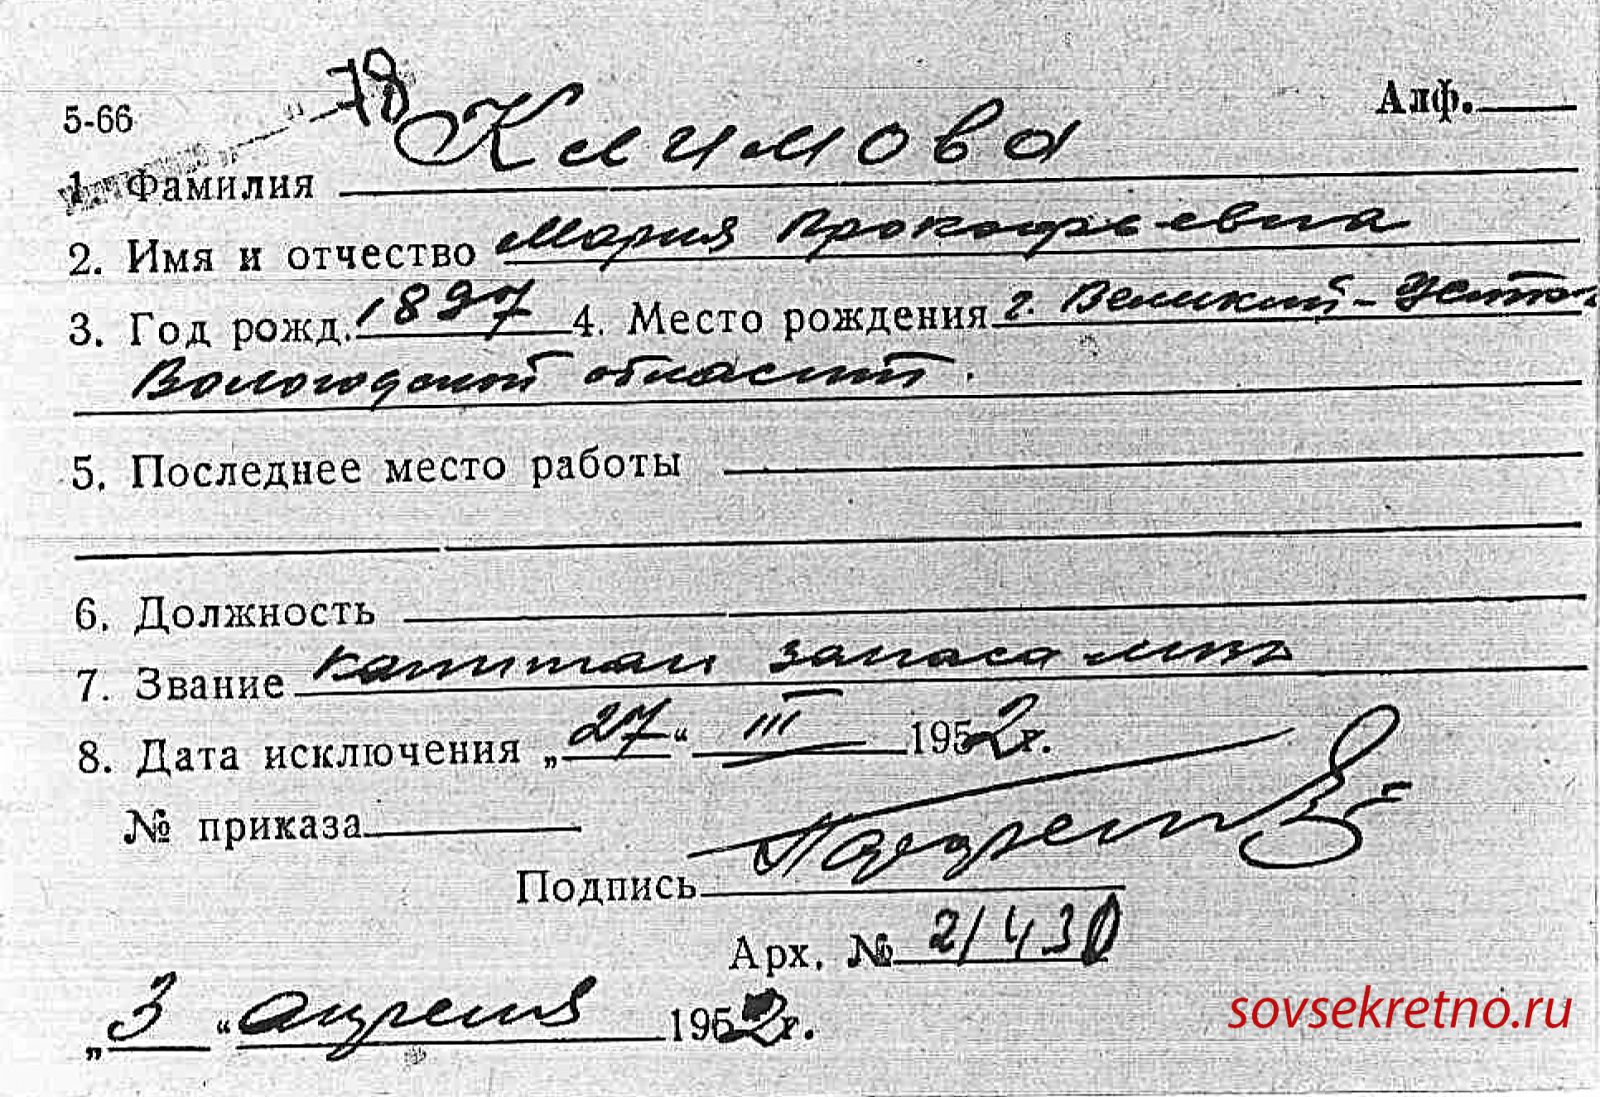 78
5-66
Алф.
1. Фамилия Климова
2. Имя и отчество Мария Прокофьевна
3. Год рожд. 1897 4. Место рождения г. Великий-Устюг
Вологодской области.
5. Последнее место работы
6. Должность
7. Звание капитан запаса
8. Дата исключения „27“ III 1952 г.
№ приказа
Подпись
Арх. № 21430
„3“ апреля 1952 г.
sovsekretno.ru